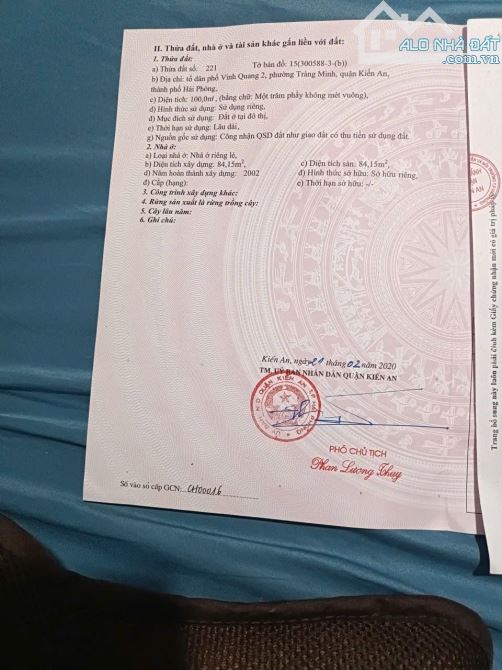 ALO NHÀ ĐẤT
II. Thửa đất, nhà ở và tài sản khác gắn liền với đất:
1. Thửa đất:
a) Thửa đất số: 221 Tờ bản đồ: 15(300588-3-(b))
b) Địa chỉ: tổ dân phố Vinh Quang 2, phường Tràng Minh, quận Kiến An,
thành phố Hải Phòng,
c) Diện tích: 100,0m², (bằng chữ: Một trăm phẩy không mét vuông),
d) Hình thức sử dụng: Sử dụng riêng,
đ) Mục đích sử dụng: Đất ở tại đô thị,
e) Thời hạn sử dụng: Lâu dài,
g) Nguồn gốc sử dụng: Công nhận QSD đất như giao đất có thu tiền sử dụng đất.
2. Nhà ở:
a) Loại nhà ở: Nhà ở riêng lẻ,
b) Diện tích xây dựng: 84,15m², c) Diện tích sàn: 84,15m²,
d) Năm hoàn thành xây dựng: 2002 đ) Hình thức sở hữu: Sở hữu riêng,
d) Cấp (hạng): e) Thời hạn sở hữu: -/-
3. Công trình xây dựng khác:
4. Rừng sản xuất là rừng trồng cây:
5. Cây lâu năm:
6. Ghi chú:
Kiến An, ngày 21 tháng 02 năm 2020
TM. ỦY BAN NHÂN DÂN QUẬN KIẾN AN
PHÓ CHỦ TỊCH
Phan Lương Thuy
Số vào sổ cấp GCN: CH00016
Trang bổ sung này luôn phải đính kèm Giấy chứng nhận mới có giá trị pháp